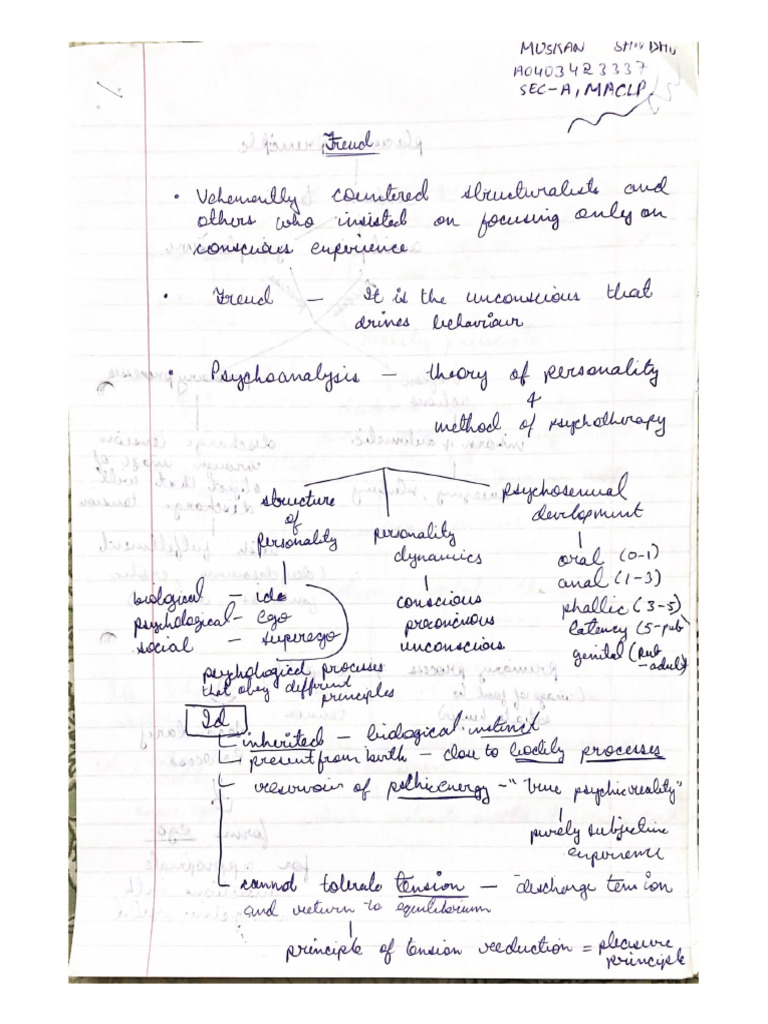 MUSKAN
A0403423337
SEC-A, MACLP.
Freud
• Vehemently countered structuralists and
others who insisted on focusing only on
conscious experience
• Freud — It is the unconscious that
drives behaviour
• Psychoanalysis — theory of personality
&
method of psychotherapy
structure
of
personality
personality
dynamics
psychosexual
development
biological — id
psychological — ego
social — superego
conscious
preconcious
unconscious
oral (0-1)
anal (1-3)
phallic (3-5)
latency (5-pub
genital (pub
-adult)
psychological processes
that obey different
principles
Id
inherited — biological instinct
present from birth — close to bodily processes
reservoir of psthic energy — "true psychic reality"
purely subjective
experience
cannot tolerate tension — discharge tension
and return to equilibrium
principle of tension reeduction = pleasure
principle